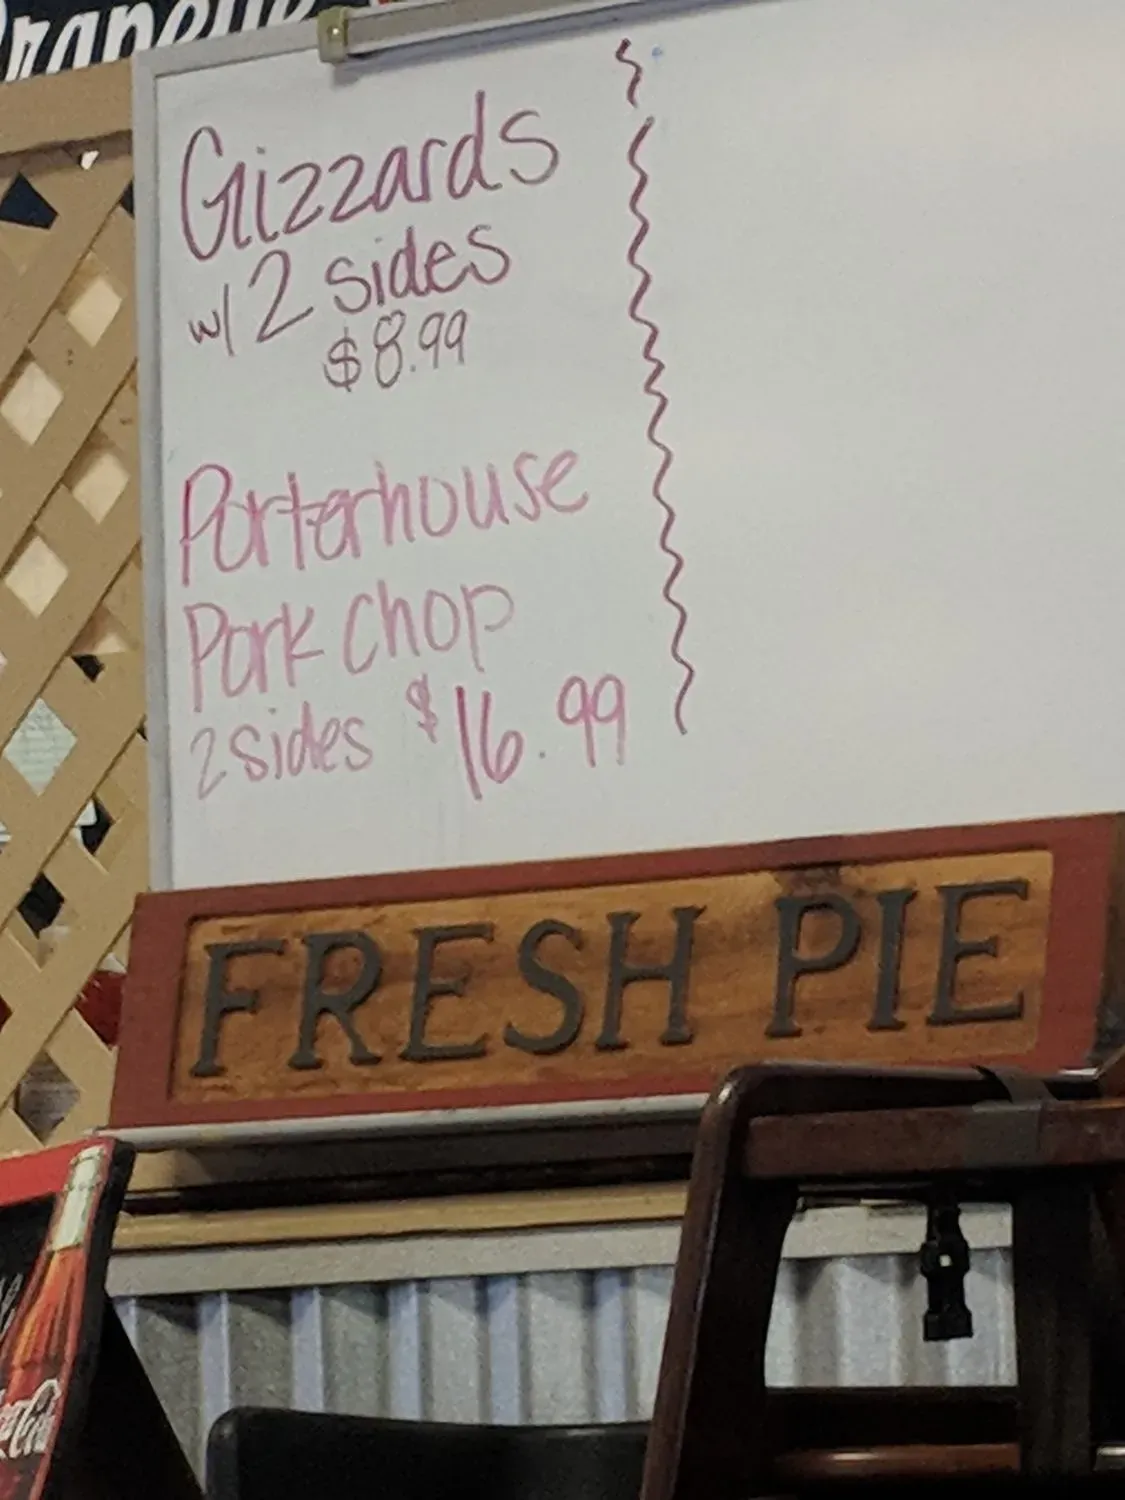 Grapette
Gizzards
w/ 2 sides
$8.99
Porterhouse
Pork Chop
2 sides $16.99
FRESH PIE